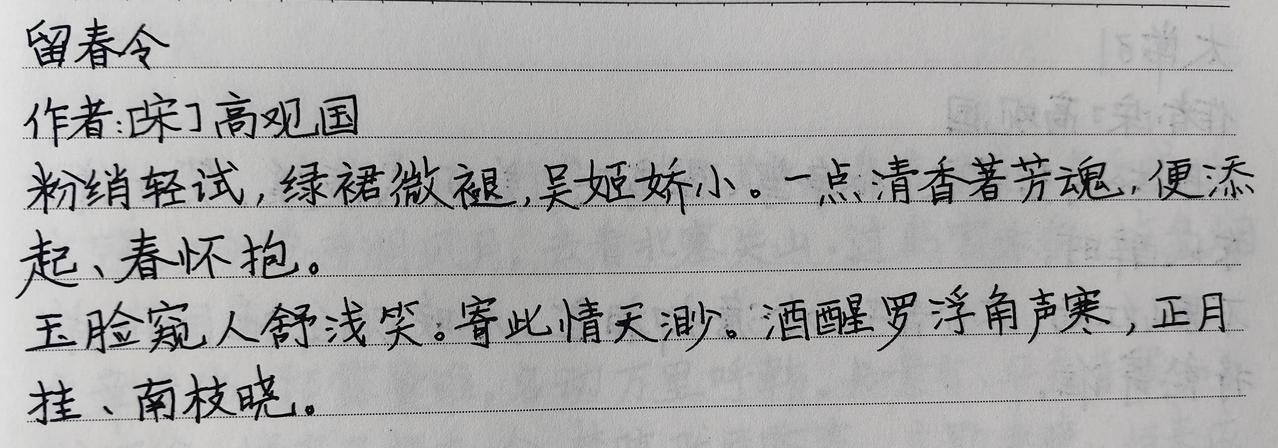 留春令
作者:[宋]高观国
粉绡轻试,绿裙微褪,吴姬娇小。一点清香著芳魂,便添
起、春怀抱。
玉脸窥人舒浅笑。寄此情天渺。酒醒罗浮角声寒,正月
挂、南枝晓。